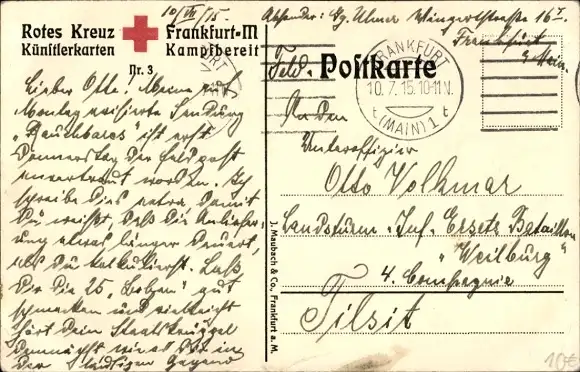 10/VII 15.
Absender: Gg. Ulmer Wingertstrasse 16
Frankfurt
Main.
Rotes Kreuz Frankfurt-M
Künstlerkarten Kampfbereit
Nr. 3
Feld- Postkarte
FRANKFURT
10.7.15.10-11N.
(MAIN) 1
An den
Unteroffizier
Otto Volkmar
Landsturm-Inf-Ersatz Bataillon
"Weilburg"
4. Compagnie
Tilsit
Lieber Otto! Meine auf
Montag avisierte Sendung
"Rauchbares" ist erst
Donnerstag der Feldpost
anvertraut worden. Ich
schreibe dies extra damit
Du weißt, daß die
etwas länger dauert,
als Du kalkulierst. Laß
Dir die 25 gut
schmecken und vielleicht
hört Dein
demnächst was Du in
der Gegend
J. Maubach & Co., Frankfurt a. M.
10€